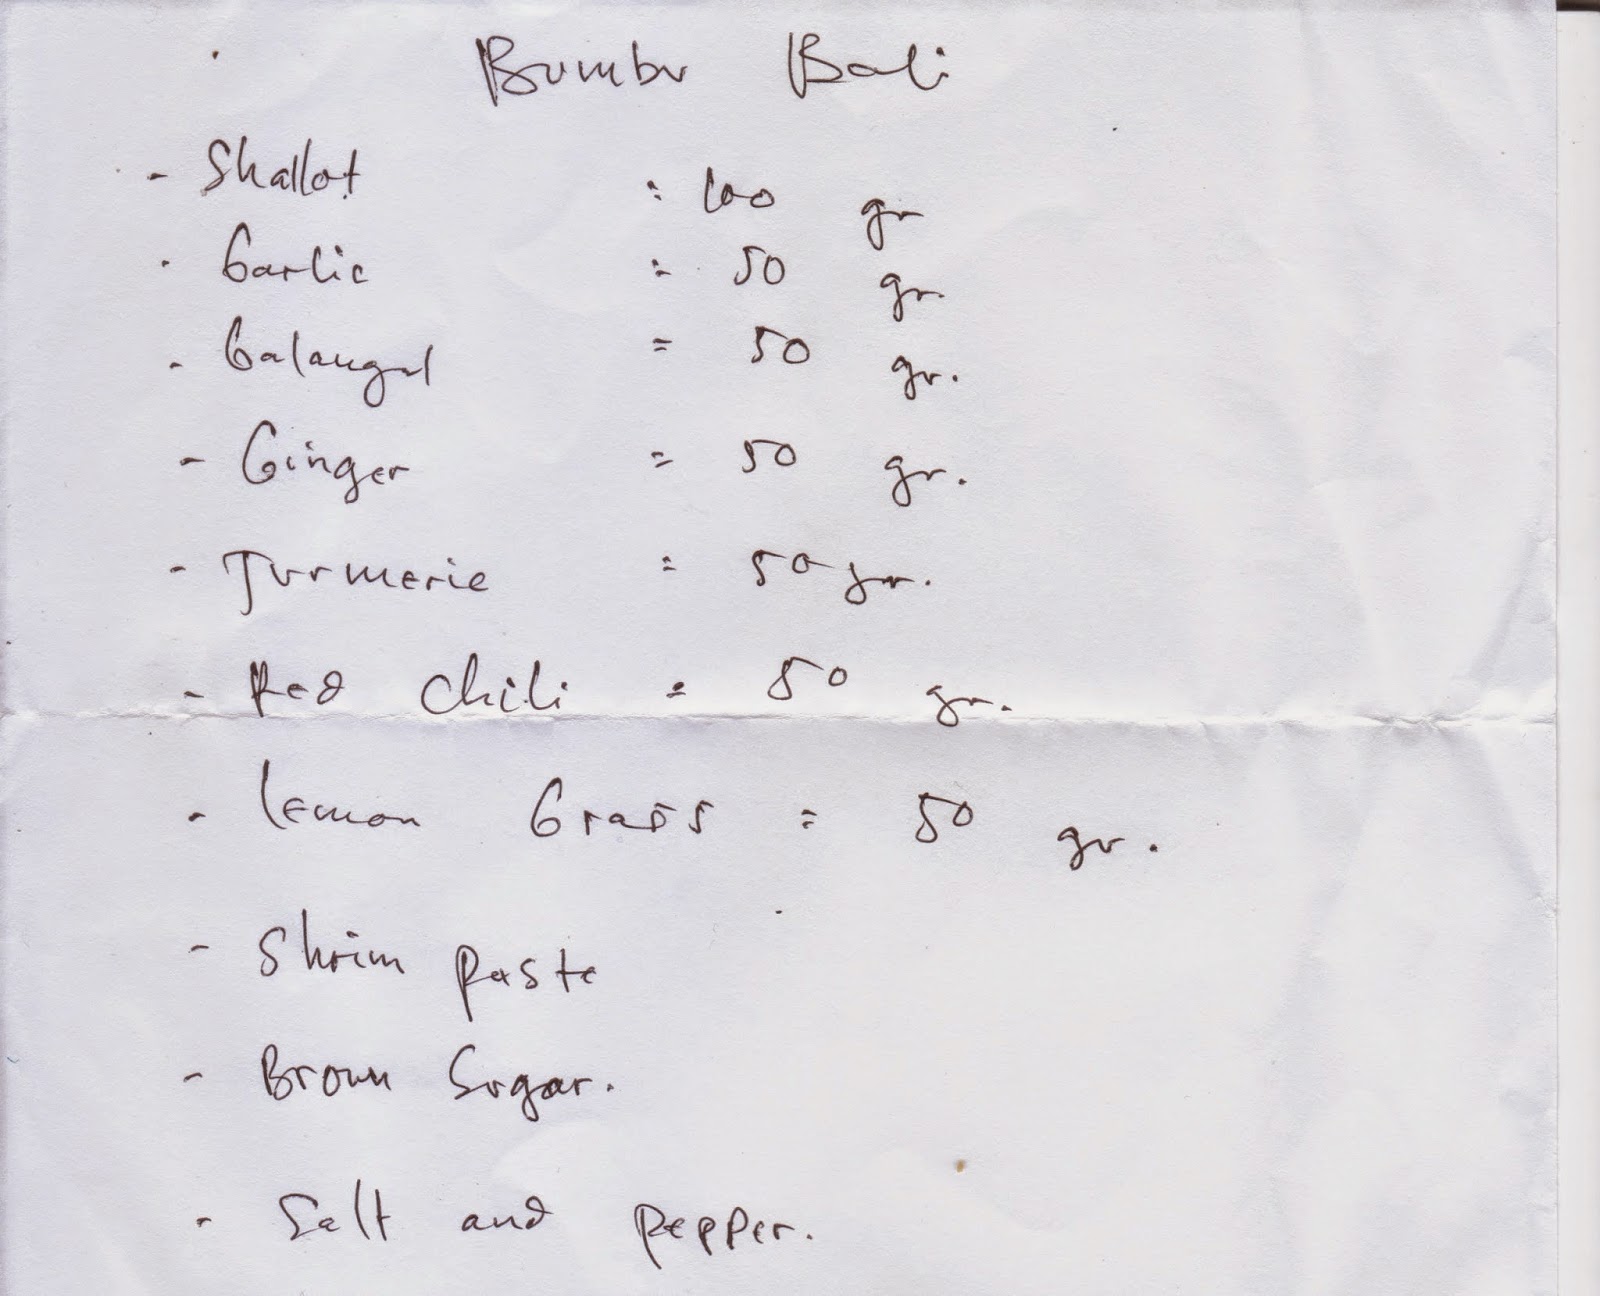 Bumbu Bali
- Shallot : 100 gr
- Garlic : 50 gr.
- Galangal = 50 gr.
- Ginger = 50 gr.
- Turmeric : 50 gr.
- Red Chili = 50 gr.
- Lemon Grass : 50 gr.
- Shrim paste
- Brown Sugar.
- Salt and pepper.